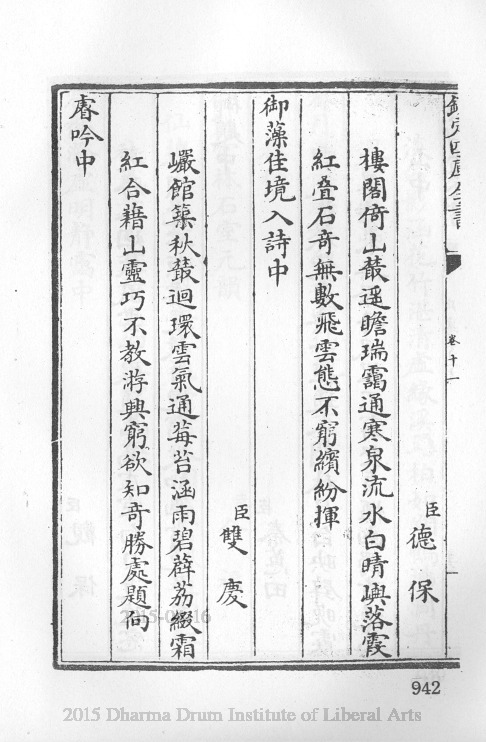 欽定四庫全書
卷十一
臣德保
樓閣倚山藂遥瞻瑞靄通寒泉流水白晴嶼落霞
紅叠石竒無數飛雲態不窮繽紛揮
御藻佳境入詩中
臣雙慶
巗館築秋藂迴環雲氣通莓苔涵雨碧薜荔綴霜
紅合藉山靈巧不教游興窮欲知竒勝處題向
睿吟中
942
2015 Dharma Drum Institute of Liberal Arts